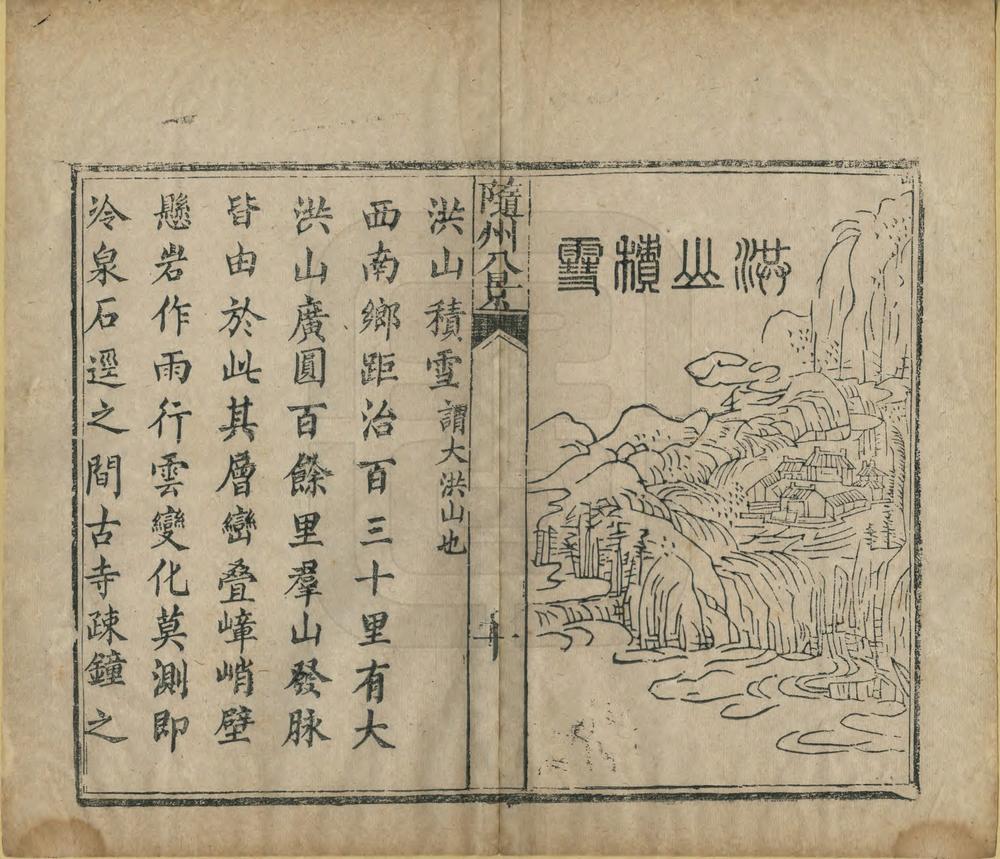 洪山積雪
隨州八景
十
洪山積雪謂大洪山也
西南鄉距治百三十里有大
洪山廣圓百餘里羣山發脉
皆由於此其層巒疊嶂峭壁
懸岩作雨行雲變化莫測即
冷泉石逕之間古寺踈鐘之